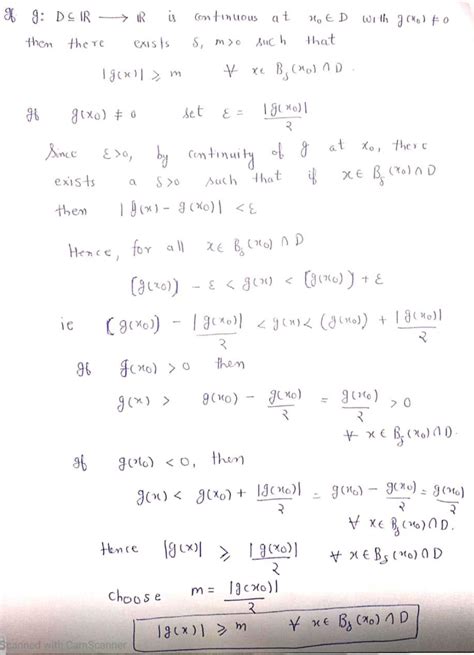 If g: D ⊆ ℝ ⟶ ℝ is continuous at x₀ ∈ D with g(x₀) ≠ 0
then there exists δ, m>0 such that
|g(x)| ⩾ m ∀ x ∈ B_δ(x₀) ∩ D.
If g(x₀) ≠ 0 set ε = |g(x₀)|/2
Since ε>0, by continuity of g at x₀, there
exists a δ>0 such that if x ∈ B_δ(x₀) ∩ D
then |g(x) - g(x₀)| < ε
Hence, for all x ∈ B_δ(x₀) ∩ D
(g(x₀)) - ε < g(x) < (g(x₀)) + ε
ie (g(x₀)) - |g(x₀)|/2 < g(x) < (g(x₀)) + |g(x₀)|/2
If g(x₀) > 0 then
g(x) > g(x₀) - g(x₀)/2 = g(x₀)/2 > 0
∀ x ∈ B_δ(x₀) ∩ D.
If g(x₀) < 0, then
g(x) < g(x₀) + |g(x₀)|/2 = g(x₀) - g(x₀)/2 = g(x₀)/2
∀ x ∈ B_δ(x₀) ∩ D.
Hence |g(x)| ⩾ |g(x₀)|/2 ∀ x ∈ B_δ(x₀) ∩ D
choose m = |g(x₀)|/2
|g(x)| ⩾ m ∀ x ∈ B_δ(x₀) ∩ D
Scanned with CamScanner